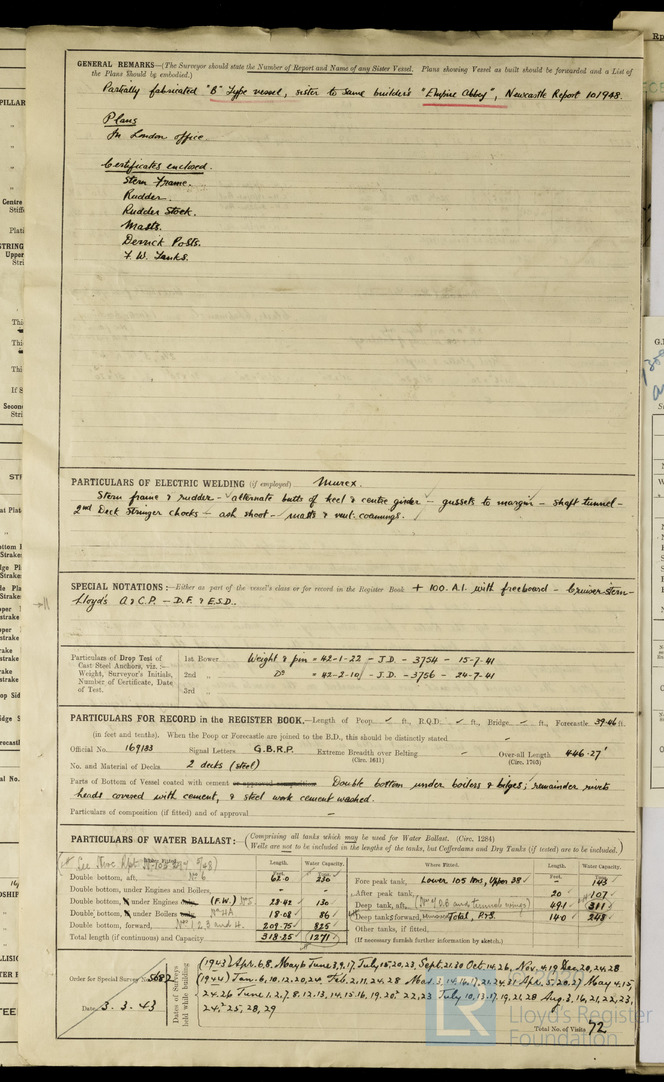 GENERAL REMARKS—(The Surveyor should state the Number of Report and Name of any Sister Vessel. Plans showing Vessel as built should be forwarded and a List of
the Plans should be embodied.)
Partially fabricated "B" Type vessel, sister to same builder's "Empire Abbey", Newcastle Report 101948.
Plans
In London office.
Certificates enclosed.
Stern Frame.
Rudder.
Rudder Stock.
Masts.
Derrick Posts.
F. W. Tanks.
PARTICULARS OF ELECTRIC WELDING (if employed) Murex.
Stern frame & rudder - alternate butts of keel & centre girder - gussets to margin - shaft tunnel -
2nd Deck stringer chocks - ash shoot - masts & vent. coamings.
SPECIAL NOTATIONS:—Either as part of the vessel's class or for record in the Register Book + 100. A.1. with freeboard - Cruiser stern -
Lloyd's A & C.P. - D.F. & E.S.D.
Particulars of Drop Test of
Cast Steel Anchors, viz.:—
Weight, Surveyor's Initials,
Number of Certificate, Date
of Test.
1st Bower Weight & pin = 42-1-22 - J.D. - 3754 - 15-7-41
2nd " Do = 42-2-10 - J.D. - 3756 - 24-7-41
3rd "
PARTICULARS FOR RECORD in the REGISTER BOOK.—Length of Poop ✓ ft., R.Q.D. ✓ ft., Bridge ✓ ft., Forecastle 39.46 ft.
(in feet and tenths). When the Poop or Forecastle are joined to the B.D., this should be distinctly stated -
Official No. 169183 Signal Letters G.B.R.P. Extreme Breadth over Belting - Over-all Length 446.27'
(Circ. 1611) (Circ. 1703)
No. and Material of Decks 2 decks (steel)
Parts of Bottom of Vessel coated with cement or approved composition Double bottom under boilers & bilges; remainder rivets
heads covered with cement, & steel work cement washed.
Particulars of composition (if fitted) and of approval -
PARTICULARS OF WATER BALLAST:—(Comprising all tanks which may be used for Water Ballast. (Circ. 1284)
Wells are not to be included in the lengths of the tanks, but Cofferdams and Dry Tanks (if tested) are to be included.)
Where Fitted. Length. Water Capacity.
Double bottom, aft, No 6 62.0 230
Double bottom, under Engines and Boilers, - -
Double bottom, under Engines (F.W.) No 5 28.42 130
Double bottom, under Boilers No 4A 18.08 86
Double bottom, forward, Nos 1 2 3 and 4. 209.75 825
Total length (if continuous) and Capacity 318.25 1271
Where Fitted. Length. Water Capacity.
Fore peak tank, Lower 105 tons, Upper 38 - 143
After peak tank, 20 107
Deep tank, aft, 49.1 311
Deep tank, forward, Total, P & S. 14.0 248
Other tanks, if fitted,
(If necessary furnish further information by sketch.)
Order for Special Survey No. 5687
Date 3. 3. 43
Dates of Surveys
held while building
(1943) Apr. 6, 8, May 6 June 3, 9, 17, July 15, 20, 23, Sept. 21, 30 Oct. 14, 26, Nov. 4, 19 Dec. 20, 24, 28
(1944) Jan. 6, 10, 12, 20, 24, Feb. 2, 11, 24, 28 Mar. 3, 14, 16, 17, 21, 24, 31 Apr. 5, 20, 27 May 4, 15,
24, 26 June 1, 2, 7, 8, 12, 13, 14, 15, 16, 19, 20, 22, 23 July 10, 13, 17, 19, 21, 28 Aug. 3, 16, 21, 22, 23,
24, 25, 28, 29
Total No. of Visits 72
LR Lloyd's Register
Foundation